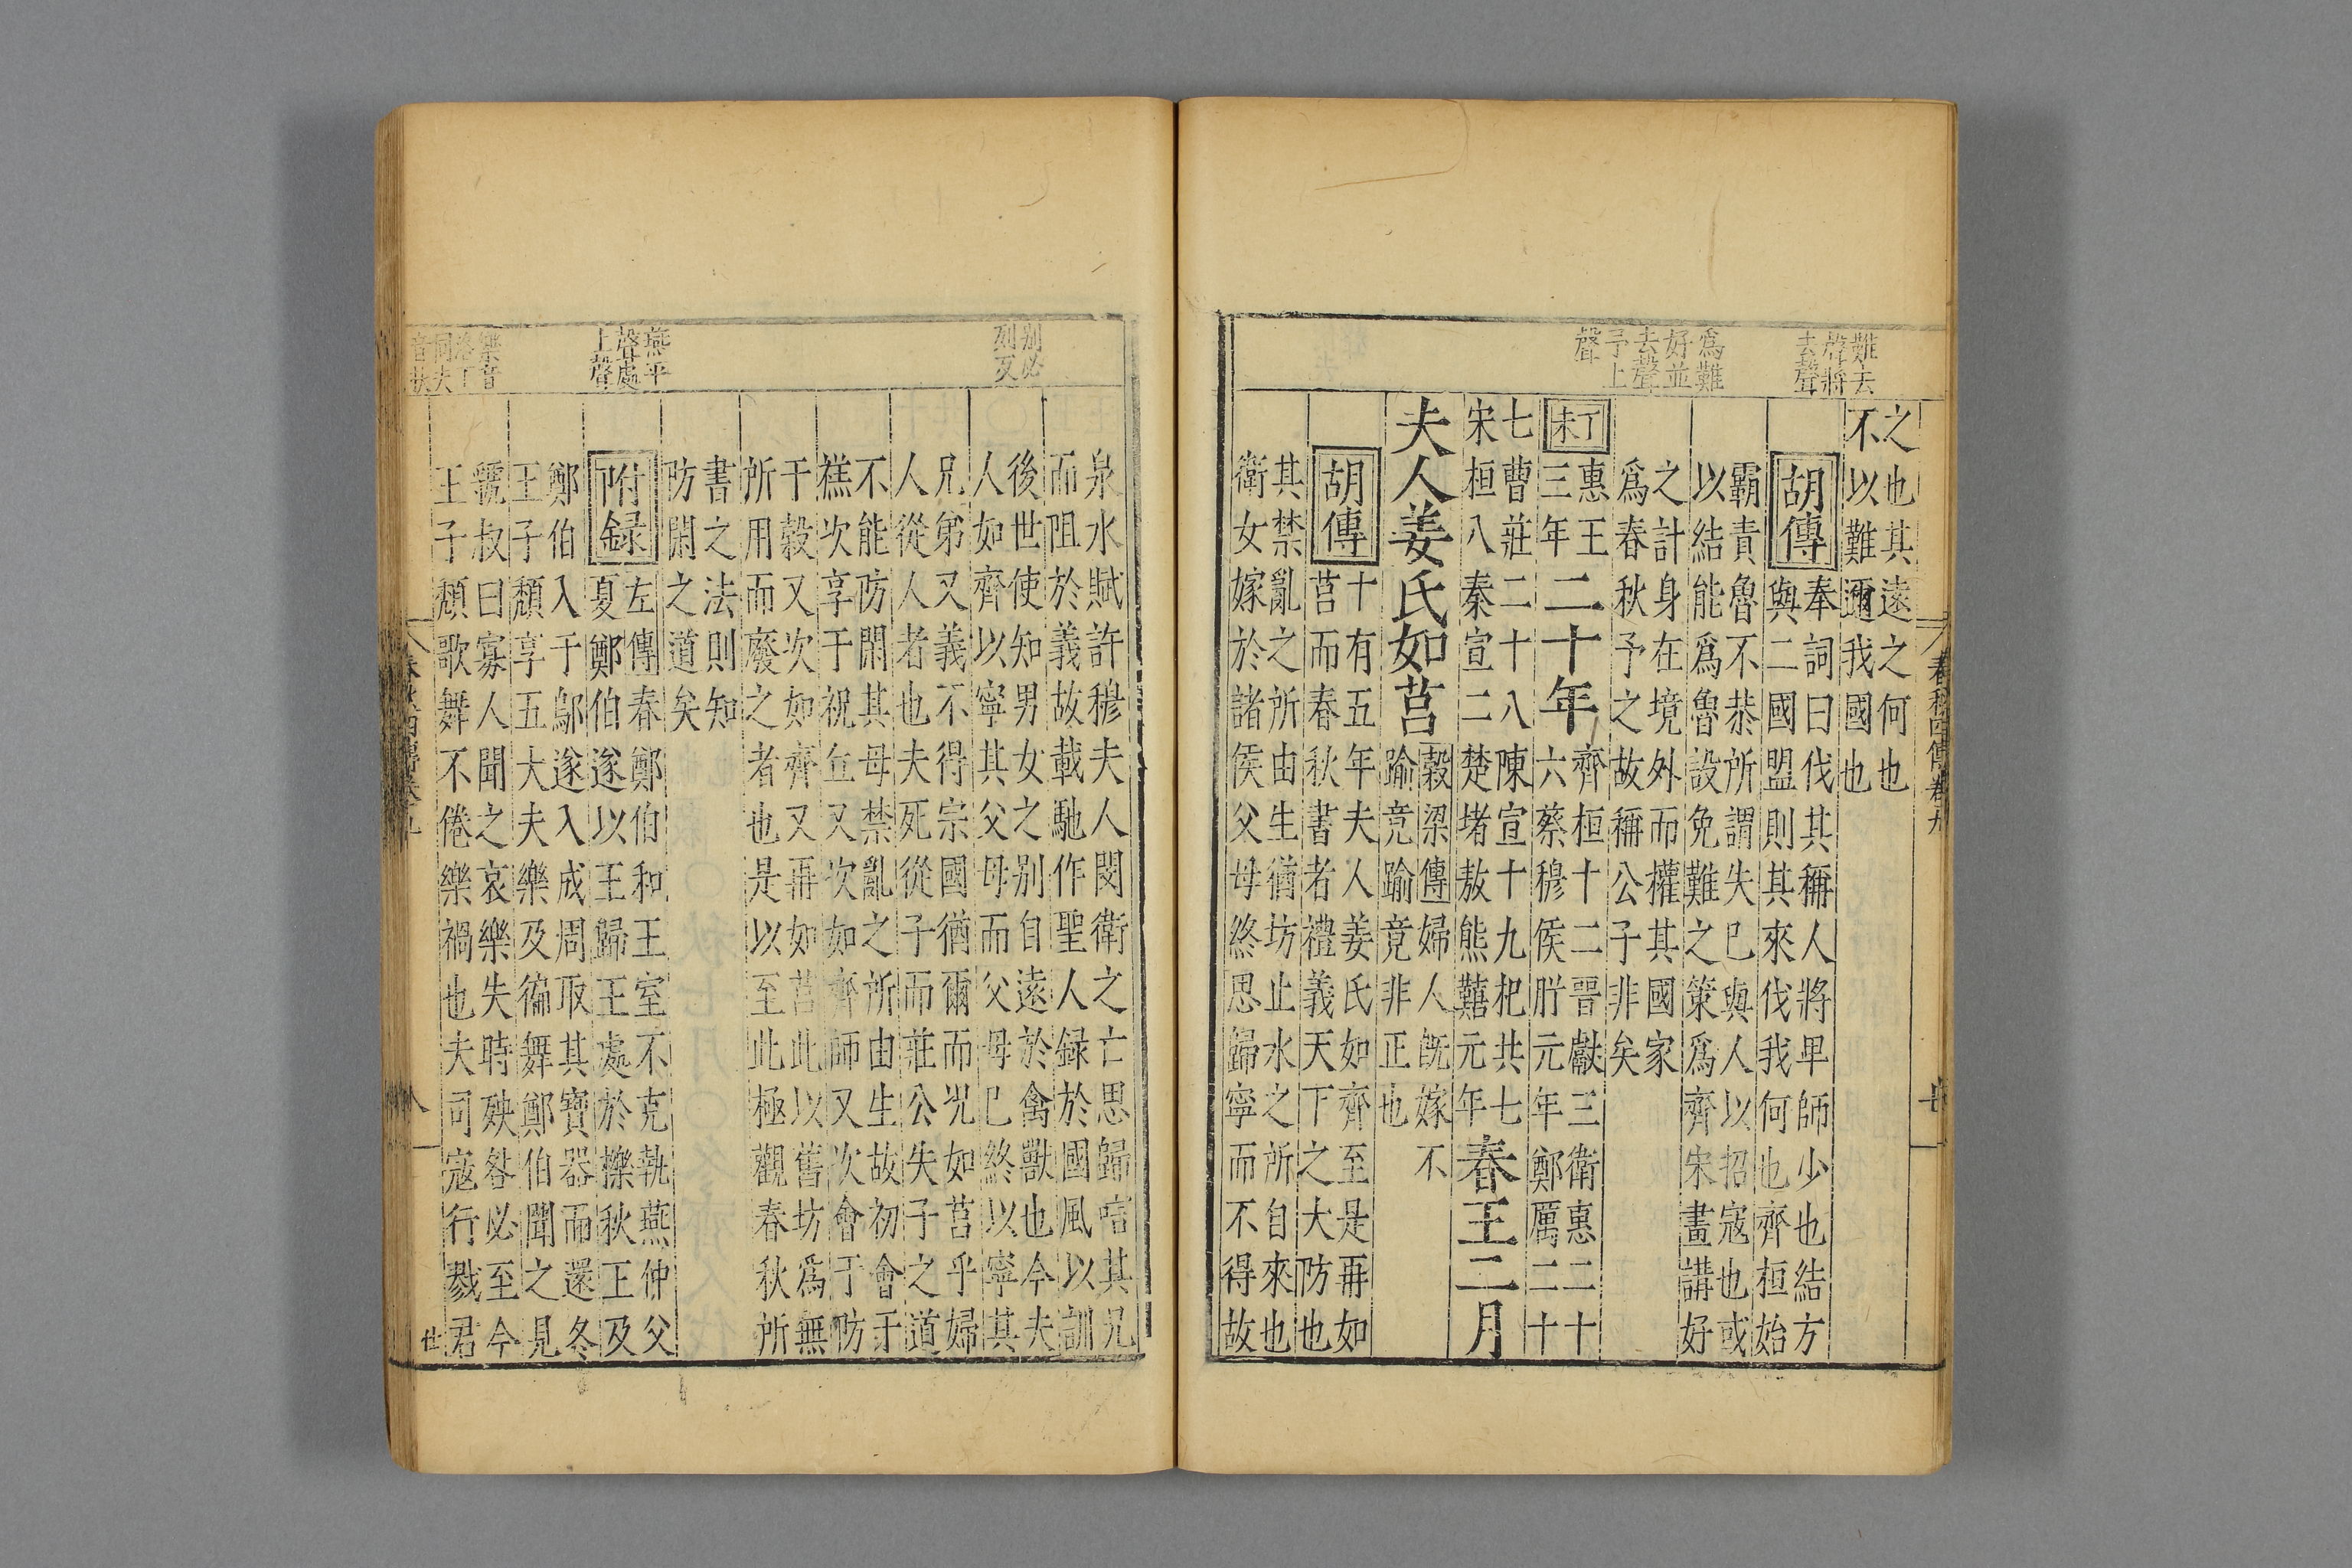 難去
聲將
去聲
爲難
好並
去聲
予上
聲
春秋四傳卷九
之也其遠之何也
不以難邇我國也
胡傳
奉詞曰伐其稱人將卑師少也結方
與二國盟則其來伐我何也齊桓始
霸責魯不恭所謂失已與人以招寇也或
以結能爲魯設免難之策爲齊宋畫講好
之計身在境外而權其國家
爲春秋予之故稱公子非矣
丁未
惠王
三年
二十年
齊桓十二晉獻三衛惠二十
六蔡穆侯肸元年鄭厲二十
七曹莊二十八陳宣十九杞共七
宋桓八秦宣二楚堵敖熊囏元年
春王二月
夫人姜氏如莒
穀梁傳婦人既嫁不
踰竟踰竟非正也
胡傳
十有五年夫人姜氏如齊至是再如
莒而春秋書者禮義天下之大防也
其禁亂之所由生猶坊止水之所自來也
衛女嫁於諸侯父母終思歸寧而不得故
别必
列反
燕平
聲處
上聲
樂音
洛下
同夫
音扶
泉水賦許穆夫人閔衛之亡思歸唁其兄
而阻於義故載馳作聖人録於國風以訓
後世使知男女之别自遠於禽獸也今夫
人如齊以寧其父母而父母已終以寧其
兄弟又義不得宗國猶爾而况如莒乎婦
人從人者也夫死從子而莊公失子之道
不能防閑其母禁亂之所由生故初會于
禚次享于祝丘又次如齊師又次會于防
于穀又次如齊又再如莒此以舊坊爲無
所用而廢之者也是以至此極觀春秋所
書之法則知
防閑之道矣
附録
左傳春鄭伯和王室不克執燕仲父
夏鄭伯遂以王歸王處於櫟秋王及
鄭伯入于鄔遂入成周取其寶器而還冬
王子頽享五大夫樂及徧舞鄭伯聞之見
虢叔曰寡人聞之哀樂失時殃咎必至今
王子頽歌舞不倦樂禍也夫司寇行戮君